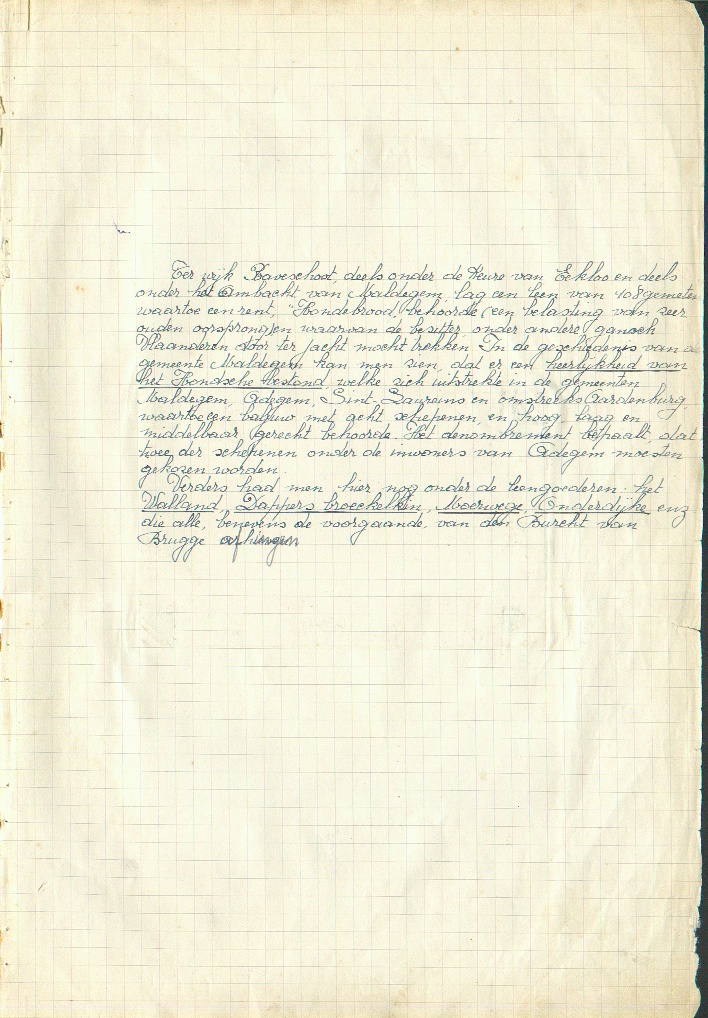 Ter wijk Raveschoot, deels onder de Keure van Eekloo en deels
onder het Ambacht van Maldegem, lag een leen van 408 gemeten
waartoe een rent, "Hondebrood, behoorde (een belasting van zeer
ouden oorsprong) en waarvan de bezitter onder andere, gansch
Vlaanderen door ter jacht mocht trekken. In de geschiedenis van de
gemeente Maldegem kan men zien, dat er een heerlijkheid van
het Hondsche bestond welke zich uitstrekte in de gemeenten
Maldegem, Adegem, Sint-Laureins en omstreeks Aardenburg,
waartoe een baljuw met acht schepenen, en hoog, laag en
middelbaar gerecht behoorde. Het denombrement bepaalt, dat
twee der schepenen onder de inwoners van Adegem moesten
gekozen worden.
Verders had men hier nog onder de leengoederen: het
Walland, Dappers broeckelken, Moerwege, Onderdijke enz
die alle, benevens de voorgaande, van den Burcht van
Brugge afhingen